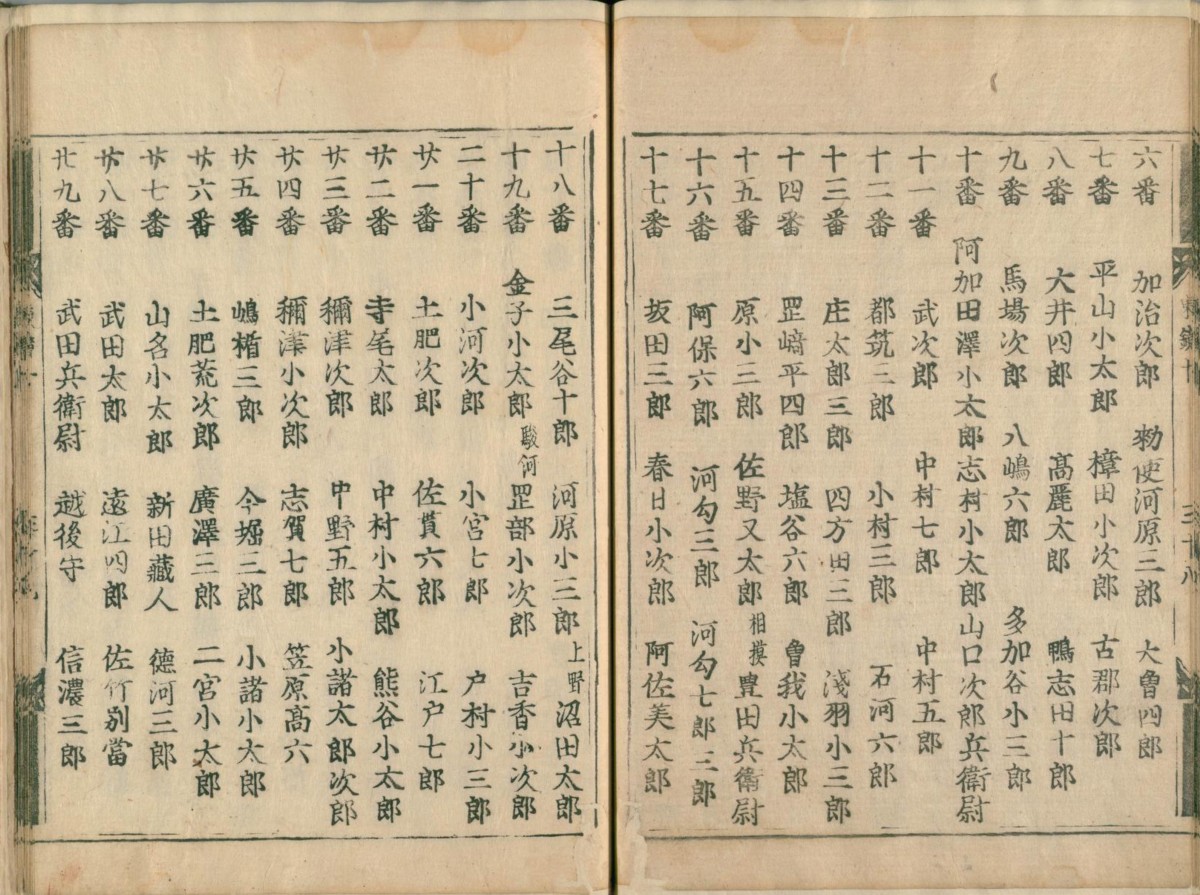 六番 加治次郎 勅使河原三郎 大曽四郎
七番 平山小太郎 樟田小次郎 古郡次郎
八番 大井四郎 髙麗太郎 鴨志田十郎
九番 馬場次郎 八嶋六郎 多加谷小三郎
十番 阿加田澤小太郎 志村小太郎 山口次郎兵衛尉
十一番 武次郎 中村七郎 中村五郎
十二番 都筑三郎 小村三郎 石河六郎
十三番 庄太郎三郎 四方田三郎 淺羽小三郎
十四番 罡﨑平四郎 塩谷六郎 曽我小太郎
十五番 原小三郎 佐野又太郎 相摸豊田兵衛尉
十六番 阿保六郎 河勾三郎 河勾七郎三郎
十七番 坂田三郎 春日小次郎 阿佐美太郎
十八番 三尾谷十郎 河原小三郎 上野沼田太郎
十九番 金子小太郎 駿河罡部小次郎 吉香小次郎
二十番 小河次郎 小宮七郎 户村小三郎
廿一番 土肥次郎 佐貫六郎 江户七郎
廿二番 寺尾太郎 中村小太郎 熊谷小太郎
廿三番 禰津次郎 中野五郎 小諸太郎次郎
廿四番 禰津小次郎 志賀七郎 笠原髙六
廿五番 嶋楯三郎 今堀三郎 小諸小太郎
廿六番 土肥荒次郎 廣澤三郎 二宮小太郎
廿七番 山名小太郎 新田藏人 德河三郎
廿八番 武田太郎 遠江四郎 佐竹别當
廿九番 武田兵衛尉 越後守 信濃三郎